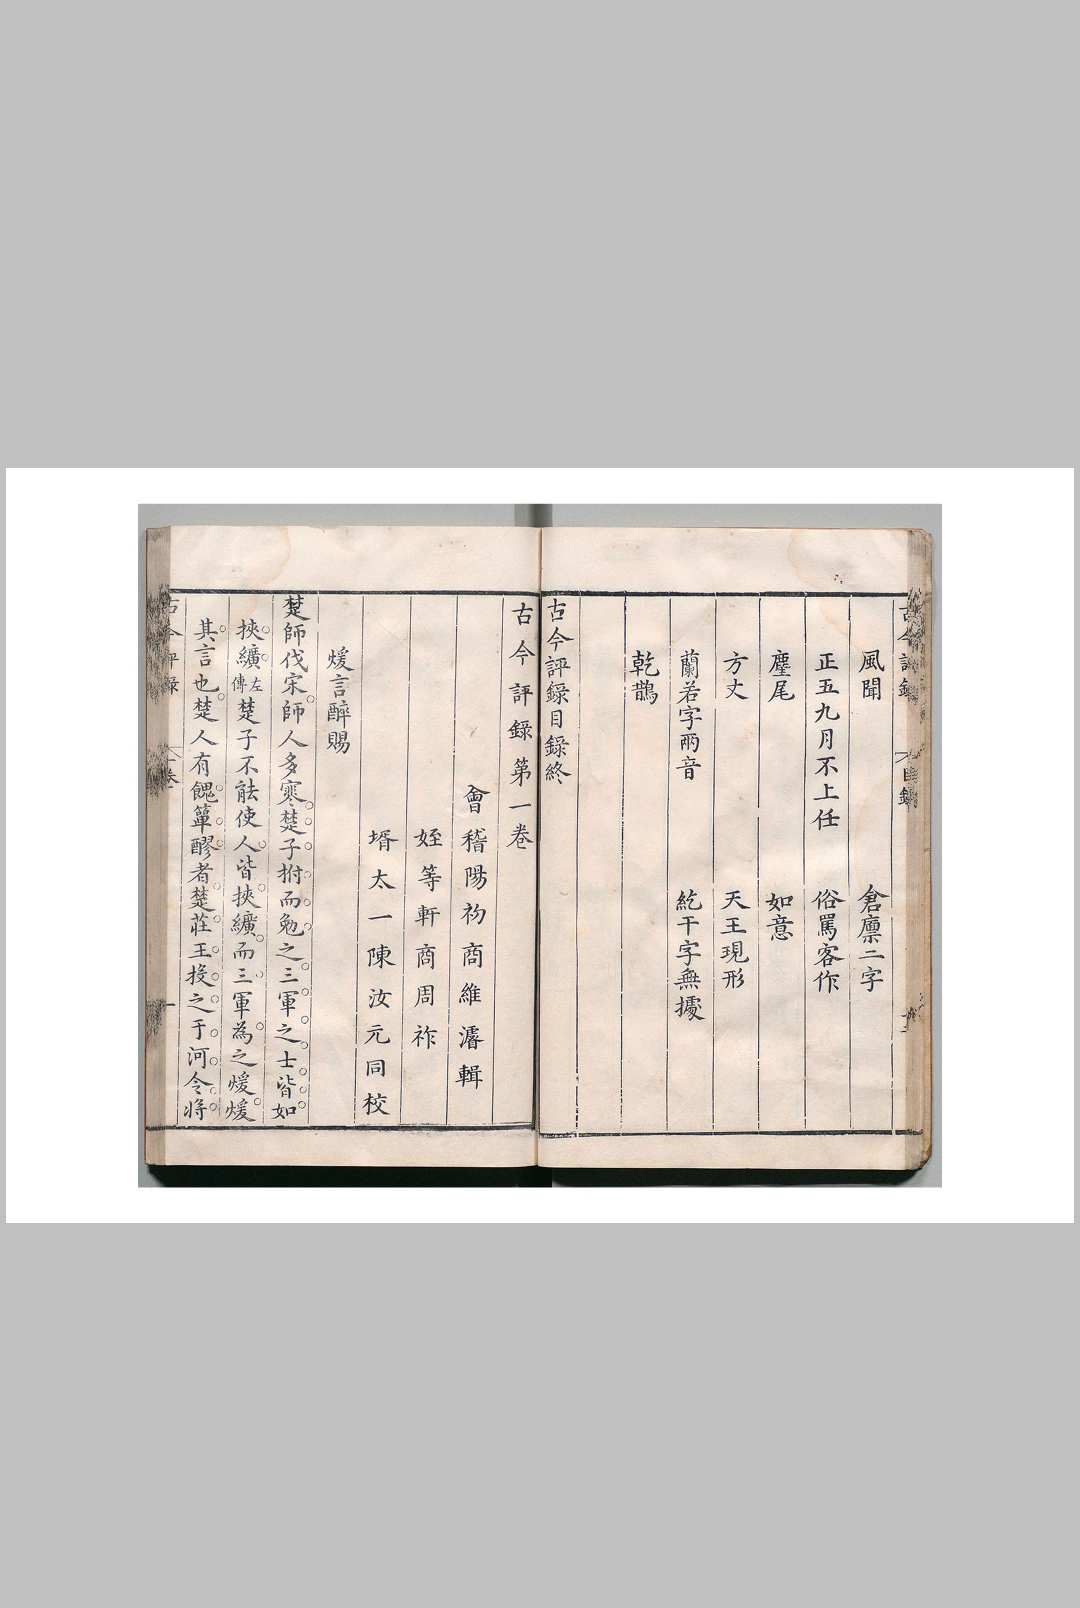 風聞 倉廪二字
正五九月不上任 俗罵客作
麈尾 如意
方丈 天王現形
蘭若字兩音 紇干字無據
乾鵲
古今評錄目錄終
古今評錄第一卷
會稽陽初商維濬輯
姪等軒商周祚
壻太一陳汝元同校
煖言醉賜
楚師伐宋師人多寒楚子拊而勉之三軍之士皆如
挾纊左傳楚子不能使人皆挾纊而三軍為之煖煖
其言也楚人有餽簞醪者楚莊王投之于河令將
古今評錄 卷一